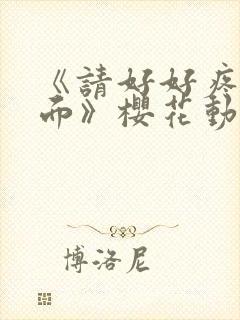 《請好好疼
而》櫻花動
博洛尼